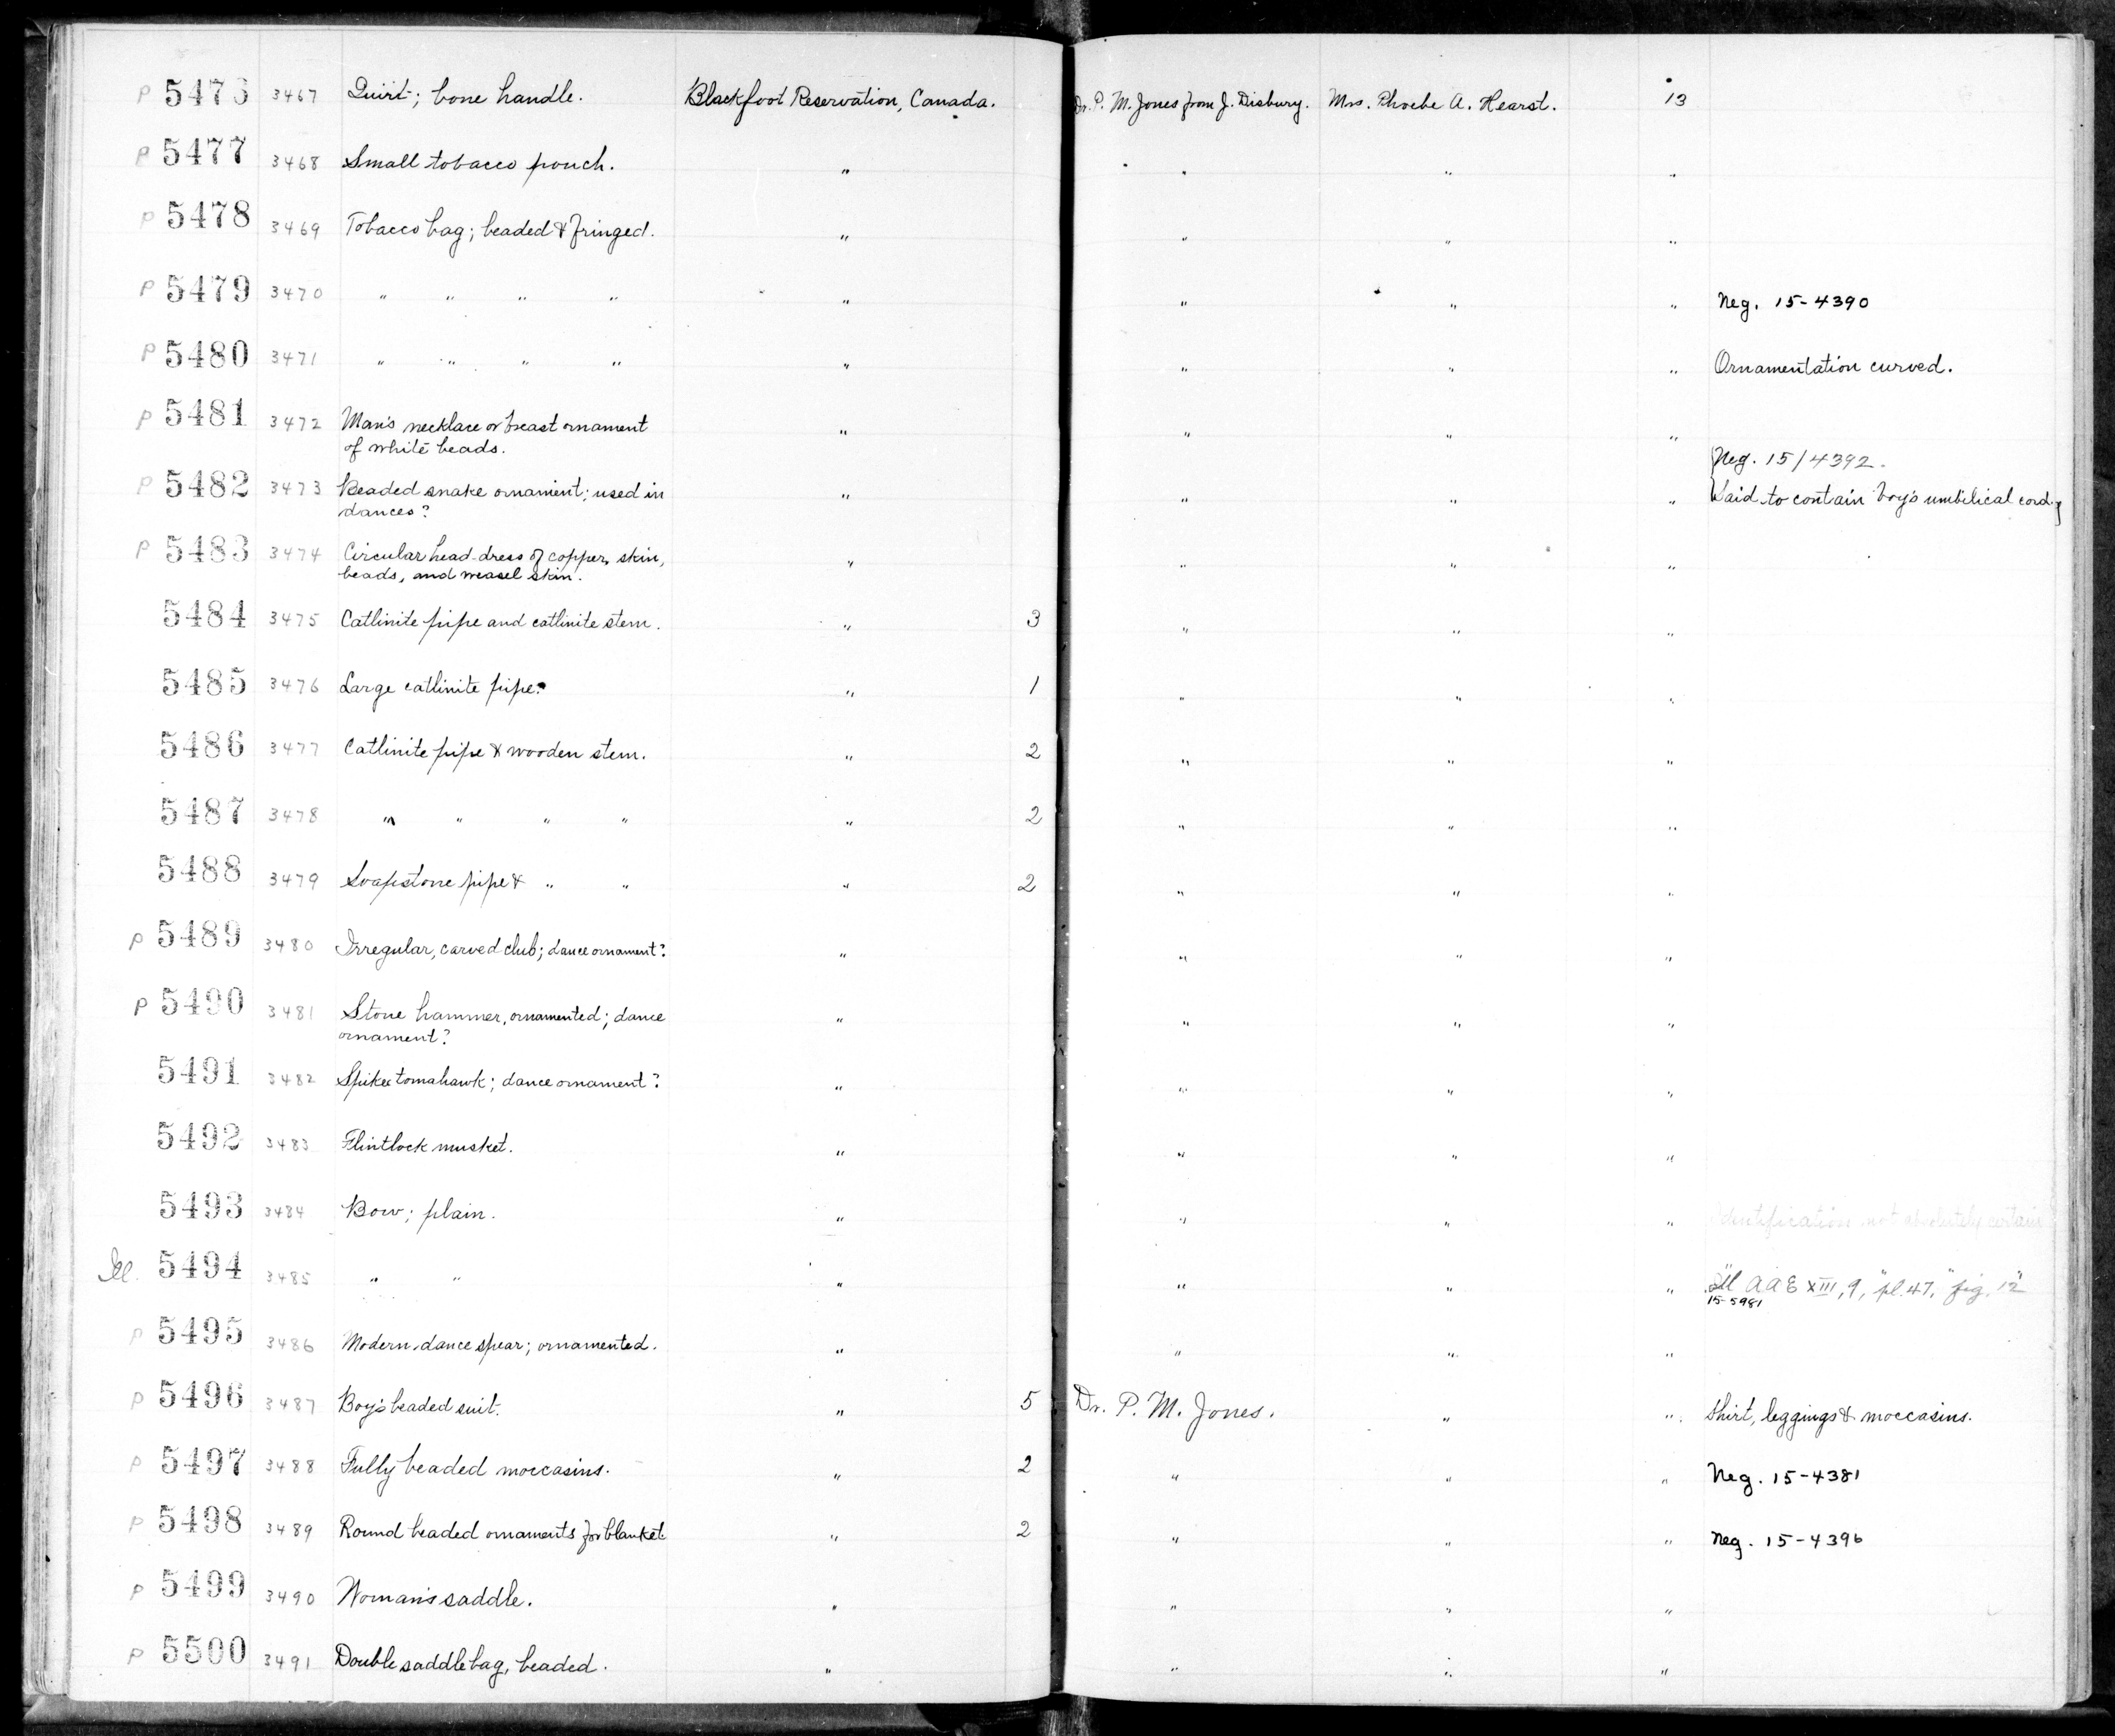 P 5476 3467 Quirt; bone handle. Blackfoot Reservation, Canada. Dr. P. M. Jones from J. Disbury. Mrs. Phoebe A. Hearst. 13
P 5477 3468 Small tobacco pouch. " " " "
P 5478 3469 Tobacco bag; beaded & fringed. " " " "
P 5479 3470 " " " " " " " " Neg. 15-4390
P 5480 3471 " " " " " " " " Ornamentation curved.
P 5481 3472 Man's necklace or breast ornament " " " "
of white beads.
Neg. 15/4392.
P 5482 3473 Beaded snake ornament; used in " " " " Said to contain boy's umbilical cord.
dances?
P 5483 3474 Circular head-dress of copper, skin, " " " "
beads, and weasel skin.
5484 3475 Catlinite pipe and catlinite stem. " 3 " " "
5485 3476 Large catlinite pipe. " 1 " " "
5486 3477 Catlinite pipe & wooden stem. " 2 " " "
5487 3478 " " " " " 2 " " "
5488 3479 Soapstone pipe & " " " 2 " " "
P 5489 3480 Irregular, carved club; dance ornament? " " " "
P 5490 3481 Stone hammer, ornamented; dance " " " "
ornament?
5491 3482 Spiked tomahawk; dance ornament? " " " "
5492 3483 Flintlock musket. " " " "
5493 3484 Bow; plain. " " " " Identification not absolutely certain
Ill. 5494 3485 " " " " " " Ill AAE XIII, 9, "pl. 47," fig. 12"
15-5981
P 5495 3486 Modern dance spear; ornamented. " " " "
P 5496 3487 Boy's beaded suit. " 5 Dr. P. M. Jones. " " Shirt, leggings & moccasins.
P 5497 3488 Fully beaded moccasins. " 2 " " " Neg. 15-4381
P 5498 3489 Round beaded ornaments for blanket. " 2 " " " Neg. 15-4396
P 5499 3490 Woman's saddle. " " " "
P 5500 3491 Double saddle bag, beaded. " " " "